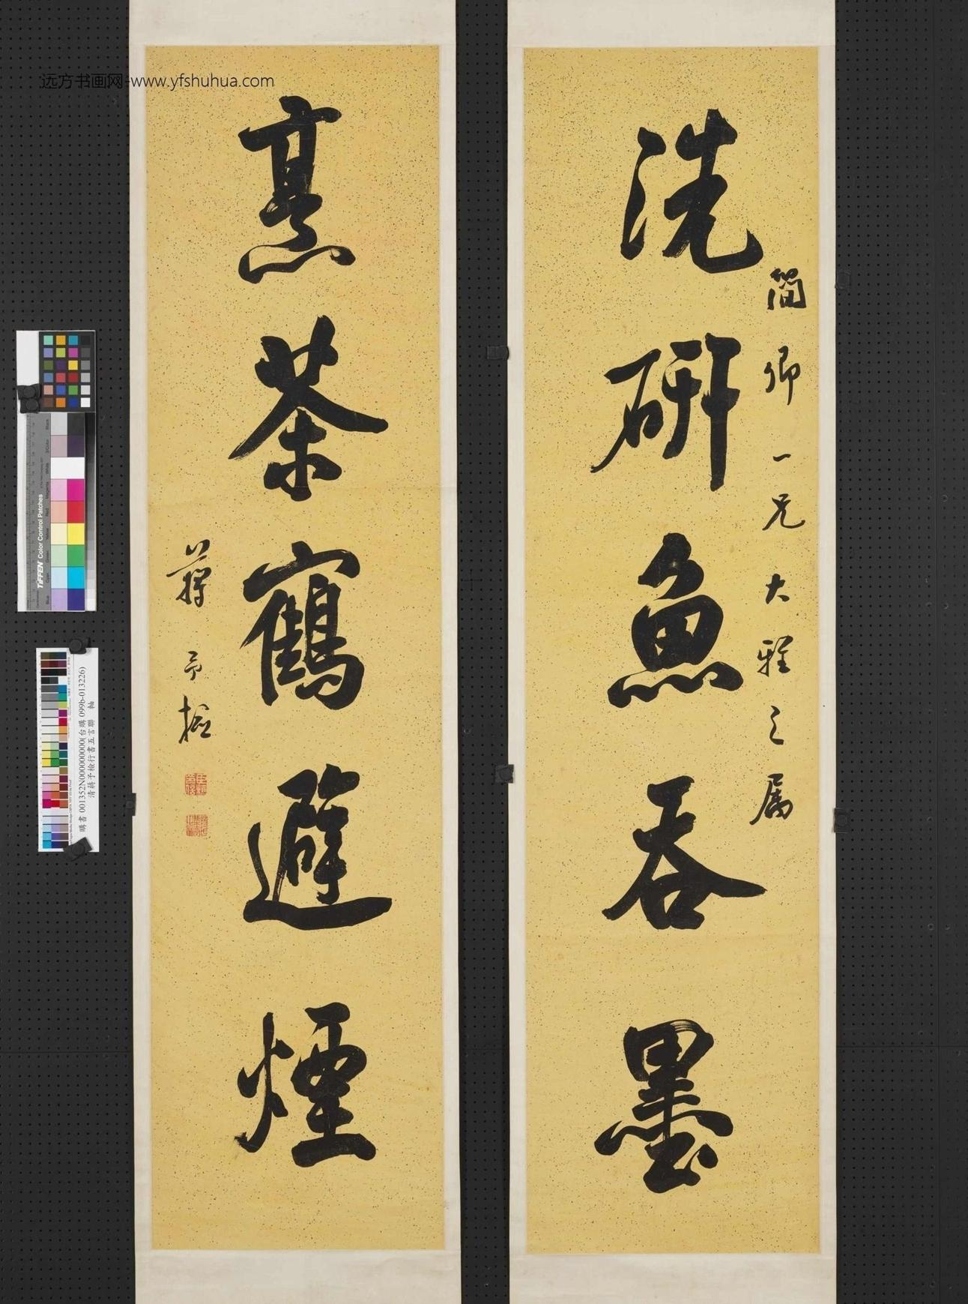 远方书画网-www.yfshuhua.com
簡卿一兄大雅之属
洗研魚吞墨
烹茶鶴避煙
蔣予検
TIFFEN Color Control Patches
購書 001352N000000000(台購 099b-013226)
清蔣予檢行書五言聯 軸